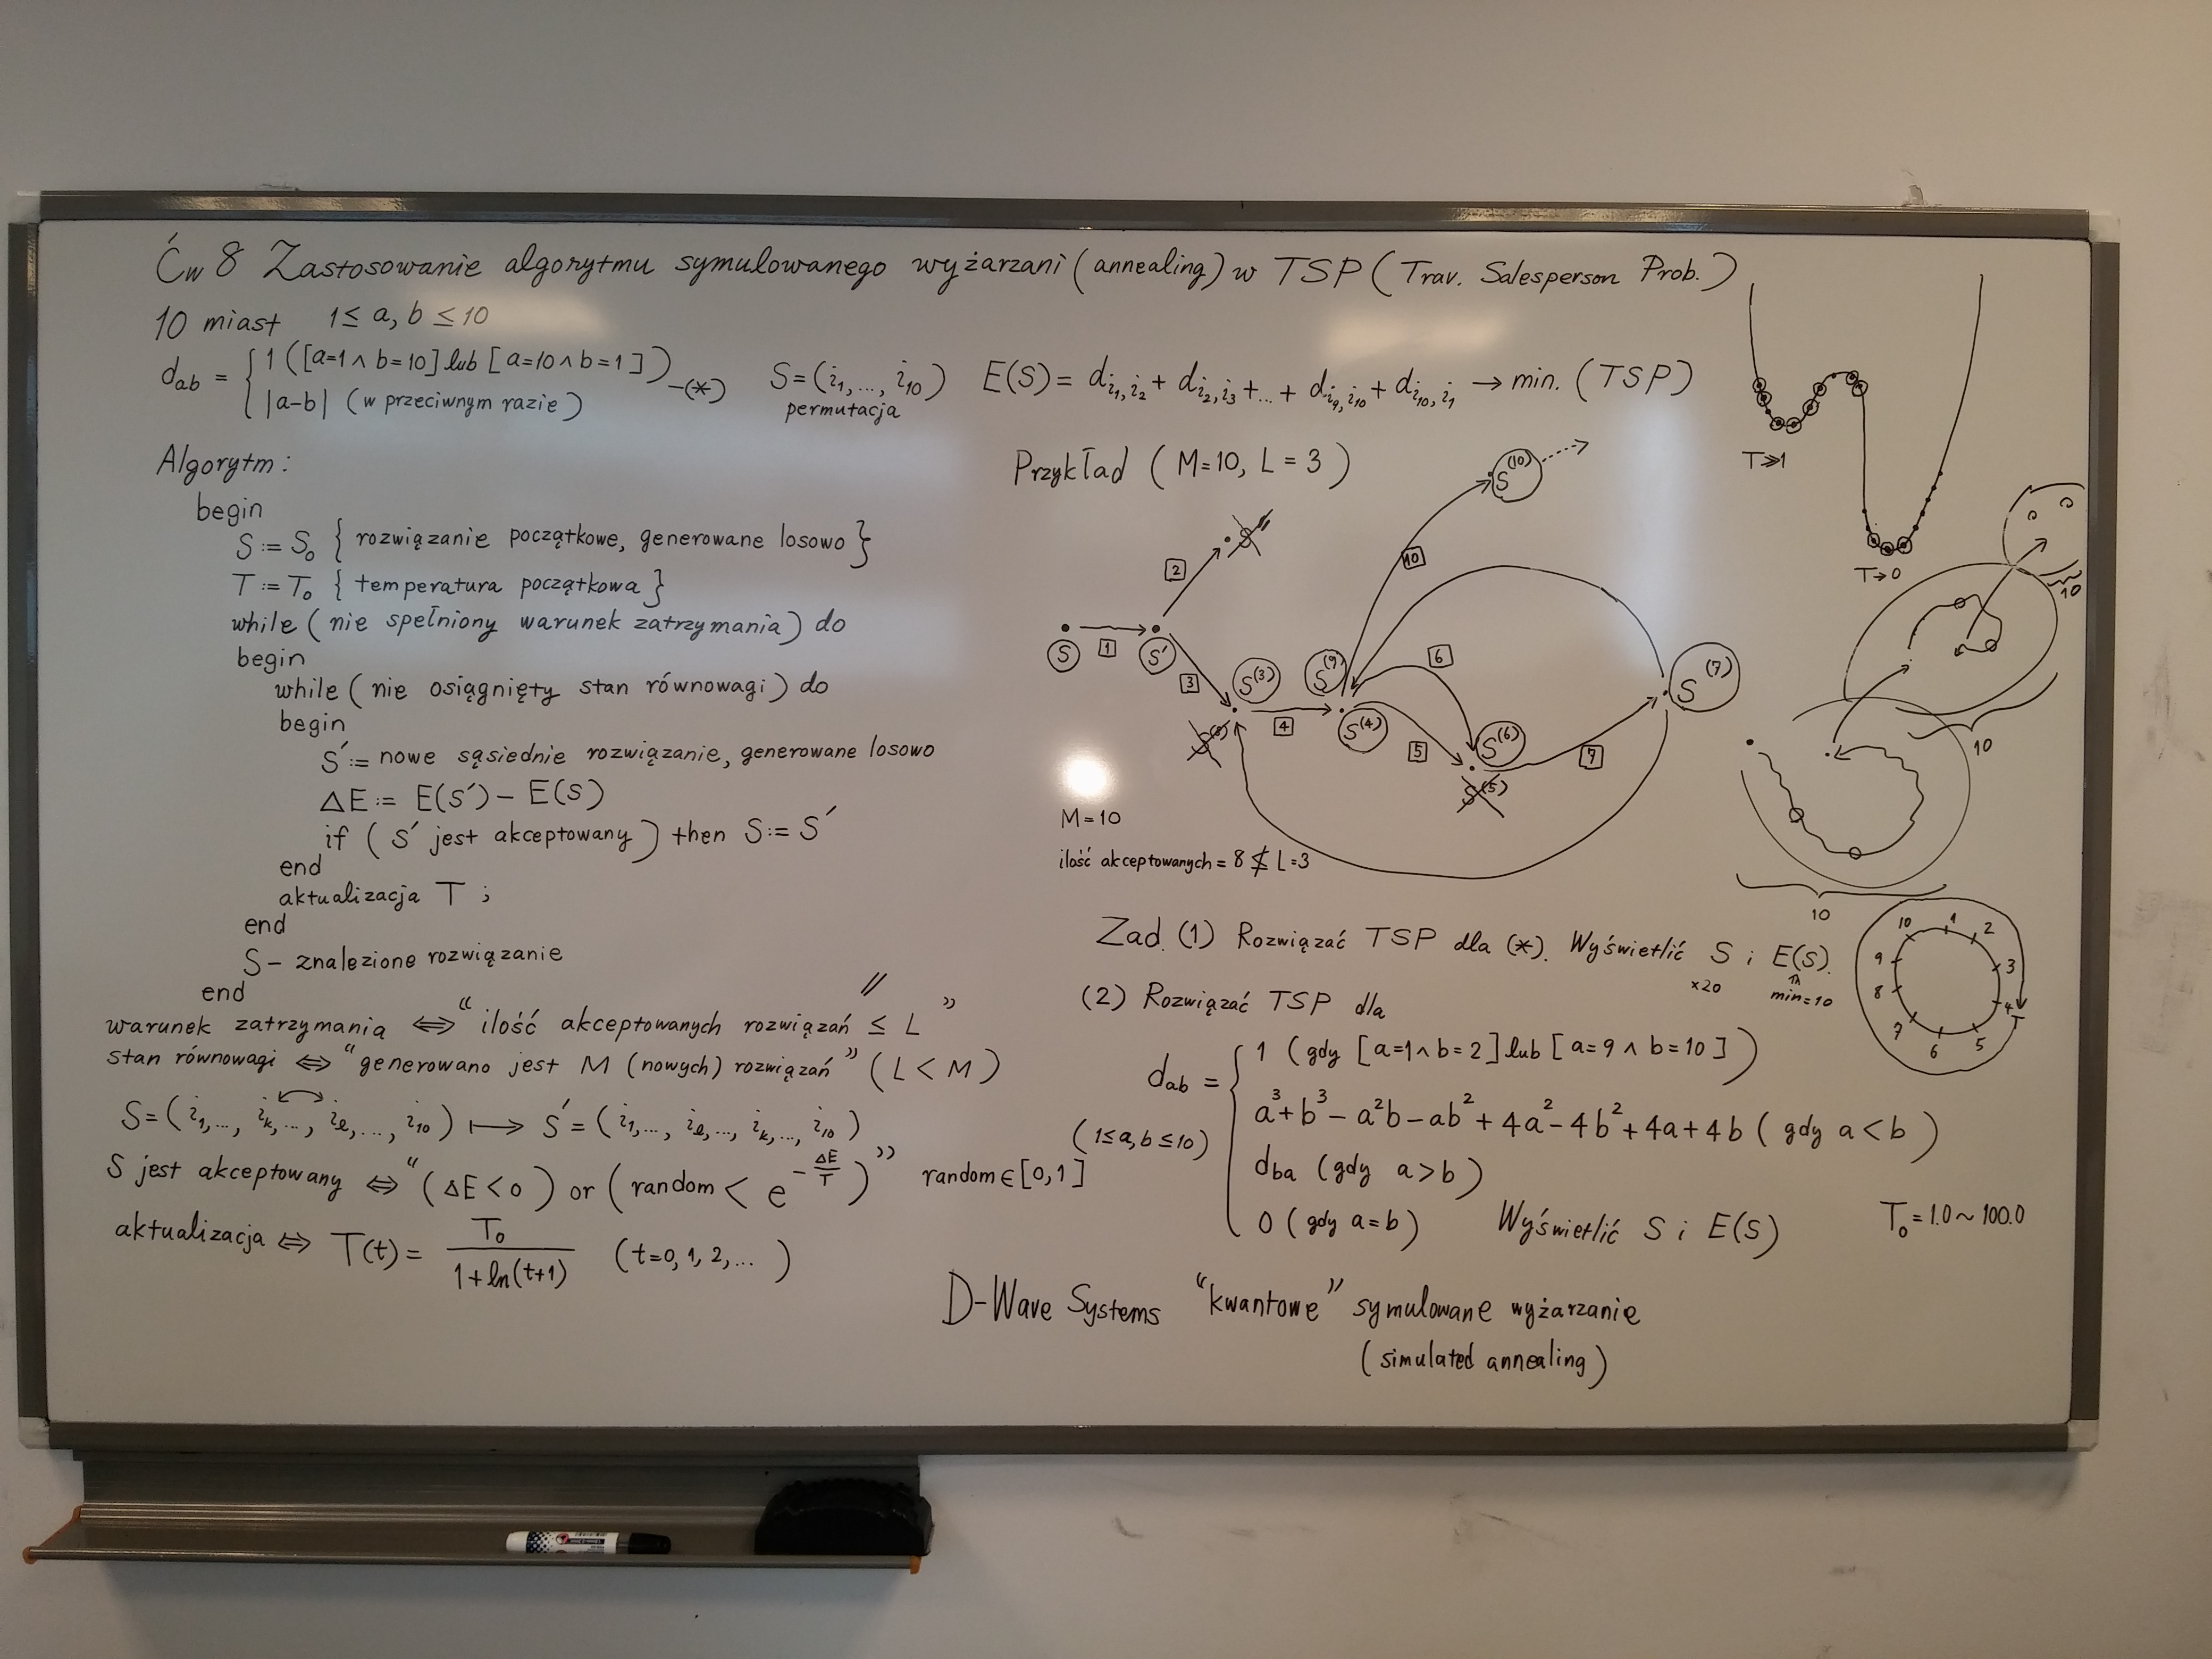 Ćw 8 Zastosowanie algorytmu symulowanego wyżarzani (annealing) w TSP (Trav. Salesperson Prob.)
10 miast 1≤ a, b ≤ 10
d_ab = { 1 ([a=1 ∧ b=10] lub [a=10 ∧ b=1])
|a-b| (w przeciwnym razie) —(*)
S=(i_1,..., i_10) E(S)= d_{i_1,i_2} + d_{i_2,i_3} +...+ d_{i_9,i_10} + d_{i_10,i_1} → min. (TSP)
permutacja
Algorytm:
begin
S := S_0 { rozwiązanie początkowe, generowane losowo }
T := T_0 { temperatura początkowa }
while ( nie spełniony warunek zatrzymania ) do
begin
while ( nie osiągnięty stan równowagi ) do
begin
S' := nowe sąsiednie rozwiązanie, generowane losowo
ΔE := E(S') - E(S)
if ( S' jest akceptowany ) then S := S'
end
aktualizacja T ;
end
S - znalezione rozwiązanie
end
warunek zatrzymania ⇔ "ilość akceptowanych rozwiązań ≤ L"
stan równowagi ⇔ "generowano jest M (nowych) rozwiązań" ( L < M )
S=( i_1,..., i_k,..., i_l,..., i_10 ) ↦ S' = ( i_1,..., i_l,..., i_k,..., i_10 )
S jest akceptowany ⇔ "( ΔE < 0 ) or ( random < e^{-ΔE/T} )" random ∈ [0,1]
aktualizacja ⇔ T(t) = T_0 / (1+ln(t+1)) (t=0, 1, 2,... )
Przykład ( M=10, L = 3 )
S
1
S'
2
S''
3
S^(3)
4
S^(9)
S^(4)
5
S^(5)
6
S^(6)
7
S^(7)
10
S^(10)
M=10
ilość akceptowanych = 8 ≰ L=3
T≫1
T→0
10
10
10
Zad. (1) Rozwiązać TSP dla (*). Wyświetlić S i E(S).
×20
min=10
10 1 2 3 4 5 6 7 8 9
(2) Rozwiązać TSP dla
d_ab = { 1 (gdy [a=1 ∧ b=2] lub [a=9 ∧ b=10])
a³+b³-a²b-ab²+4a²-4b²+4a+4b ( gdy a < b )
(1≤a,b≤10)
d_ba (gdy a>b)
0 ( gdy a=b ) Wyświetlić S i E(S) T_0 = 1.0 ~ 100.0
D-Wave Systems "kwantowe" symulowane wyżarzanie
( simulated annealing )